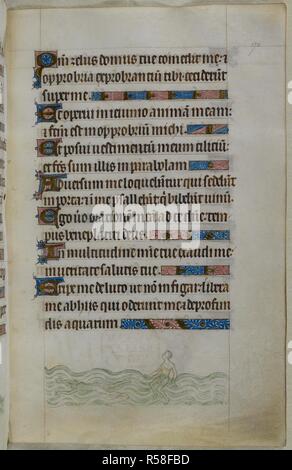 Qm zelus domus tue comedit me: et
opprobria exprobrantium tibi ceciderunt
super me.
Et operui in ieiunio animam meam:
et factum est in opprobrium michi.
Et posui vestimentum meum cilicium:
et factus sum illis in parabolam
Adversum me loquebantur qui sedebant
in porta: et in me psallebant qui bibebant vinum.
Ego vero orationem meam ad te domine: tempus
beneplaciti deus.
In multitudine misericordie tue exaudi me:
in veritate salutis tue.
Eripe me de luto ut non infigar: libera
me ab hiis qui oderunt me et de profundis
aquarum
alamy
Image ID: R58FBD
www.alamy.com